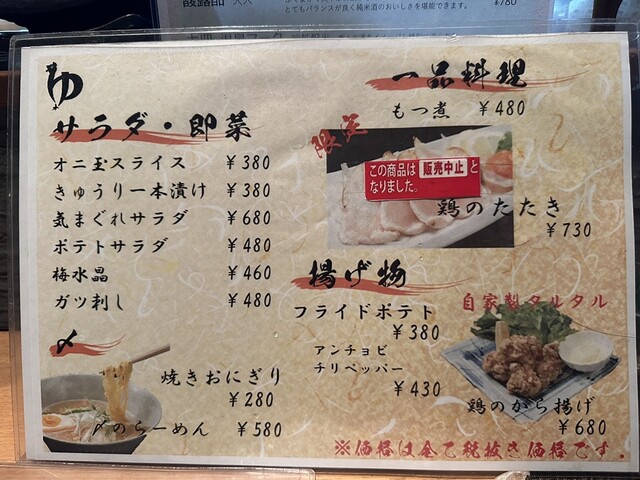 とてもバランスが良く純米酒のおいしさを堪能できます。
¥780
ゆ
サラダ・即菜
オニ玉スライス ¥380
きゅうり一本漬け ¥380
気まぐれサラダ ¥680
ポテトサラダ ¥480
梅水晶 ¥460
ガツ刺し ¥480
〆
焼きおにぎり
¥280
〆のらーめん ¥580
一品料理
もつ煮 ¥480
限定
この商品は販売中止と
なりました。
鶏のたたき
¥730
揚げ物
フライドポテト
¥380
アンチョビ
チリペッパー
¥430
自家製タルタル
鶏のから揚げ
¥680
※価格は全て税抜き価格です。